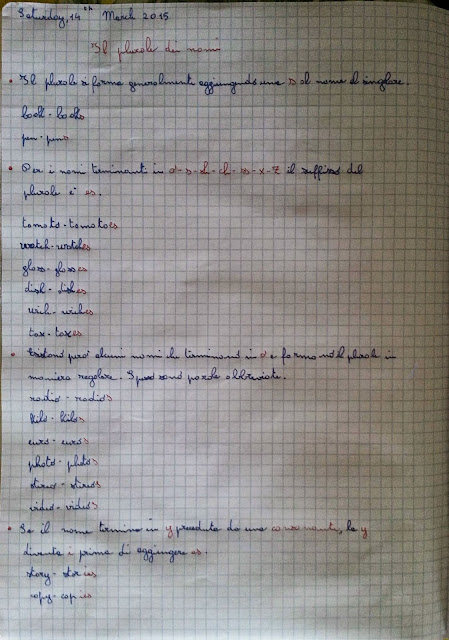 Saturday, 14th March 2015
Il plurale dei nomi
• Il plurale si forma generalmente aggiungendo una s al nome al singolare.
book - books
pen - pens
• Per i nomi terminanti in o-s-sh-ch-ss-x-z il suffisso del
plurale è es.
tomato - tomatoes
watch - watches
glass - glasses
dish - dishes
tax - taxes
• Esistono però alcuni nomi che terminano in o e formano il plurale in
maniera regolare. Spesso sono parole abbreviate.
radio - radios
kilo - kilos
euro - euros
photo - photos
stereo - stereos
video - videos
• Se il nome termina in y preceduta da una consonante, la y
diventa i prima di aggiungere es.
story - stories
copy - copies